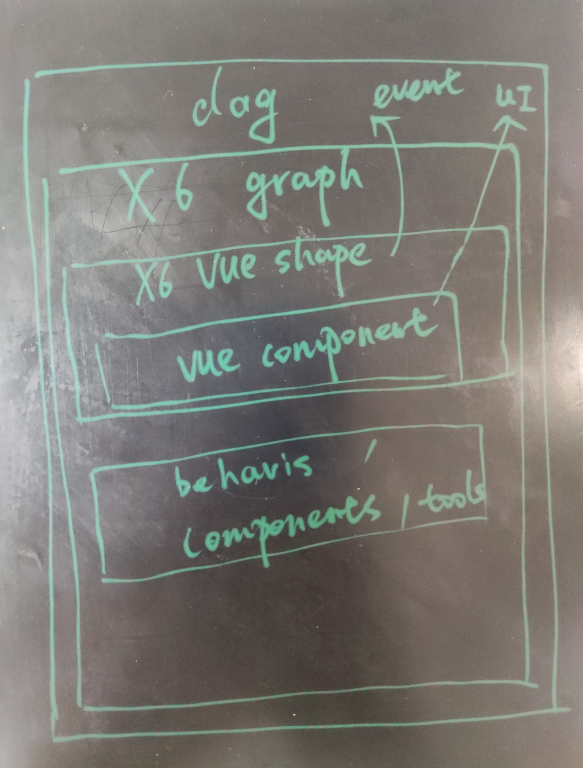 dag
event
UI
X6 graph
X6 Vue shape
Vue component
behavis ,
components , tools